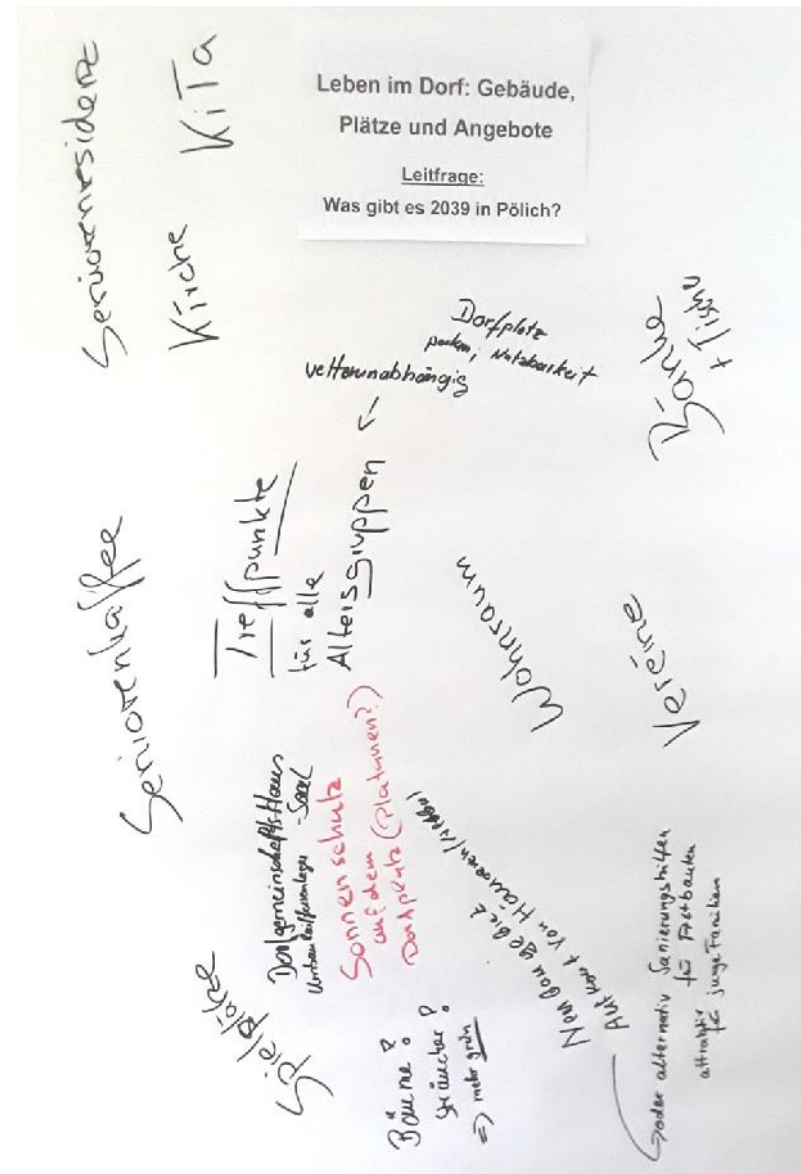 Leben im Dorf: Gebäude,
Plätze und Angebote
Leitfrage:
Was gibt es 2039 in Pölich?
Seniorenresidenz
Kirche KiTa
Dorfplatz
parken, Nutzbarkeit
wetterunabhängig
Bänke
+ Tische
Treffpunkte
für alle
Altersgruppen
Seniorenkaffee
Wohnraum
Vereine
Dorfgemeinschaftshaus
-Saal
Sonnenschutz
auf dem
Dorfplatz (Platanen?)
Spielplätze
Bäume?
Sträucher?
=> mehr grün
Neubaugebiet
Ankauf von Häusern
oder alternativ Sanierungshilfen
für Altbauten
attraktiv
für junge Familien